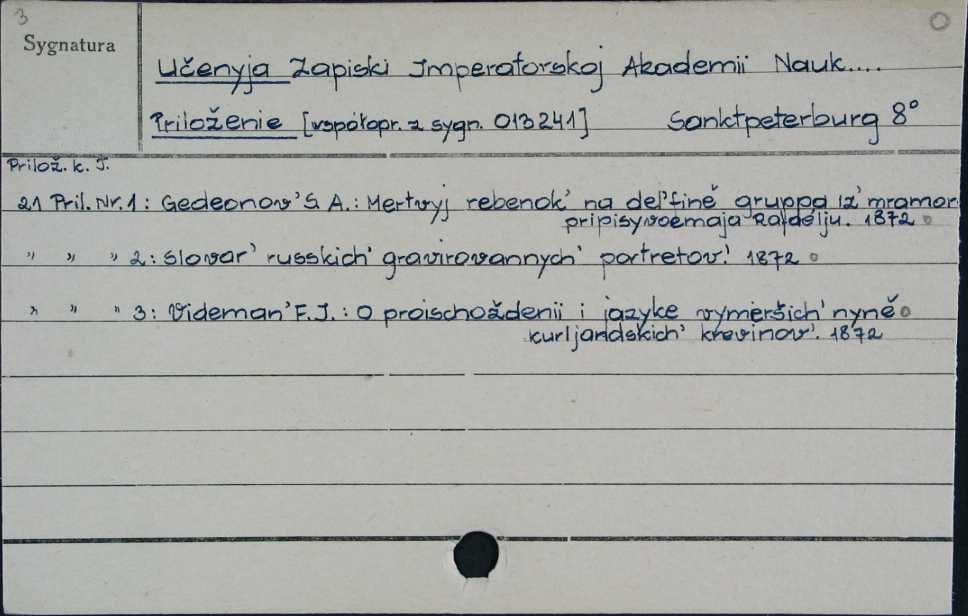 3
Sygnatura
Učenyja Zapiski Imperatorskoj Akademii Nauk....
Priloženie [współopr. z sygn. 013241] Sanktpeterburg 8°
Prilož. k. T.
21 Pril. Nr. 1 : Gedeonov' S. A. : Mertvyj rebenok' na del'fině gruppa iz' mramor
pripisyvoemaja Rafaelju. 1872
" " " 2 : Slovar' russkich' gravirovannych' portretov'. 1872
" " " 3 : Videman' F. J. : O proischoždenii i jazyke vymeršich' nyně
kurljandskich' krevinov'. 1872